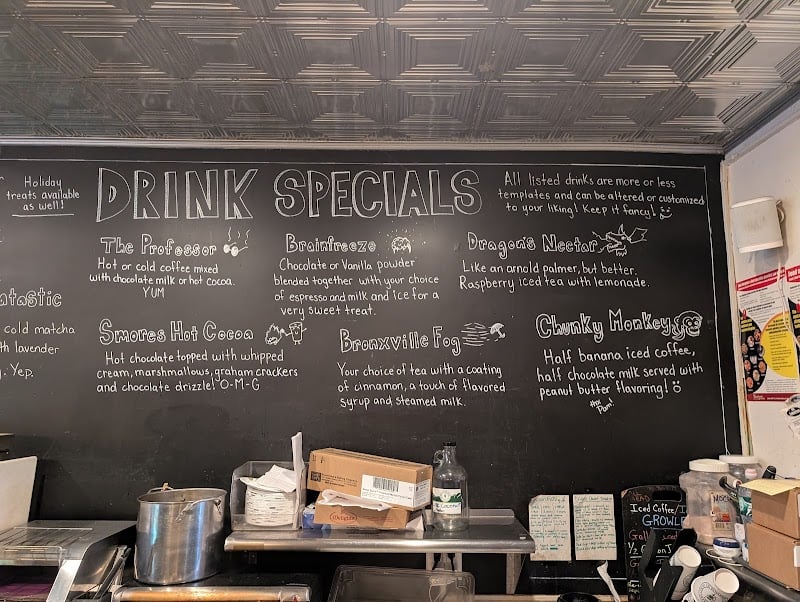 Holiday
treats available
as well!
DRINK SPECIALS
All listed drinks are more or less
templates and can be altered or customized
to your liking! Keep it fancy!
The Professor
Hot or cold coffee mixed
with chocolate milk or hot cocoa.
YUM
Brainfreeze
Chocolate or Vanilla powder
blended together with your choice
of espresso and milk and ice for a
very sweet treat.
Dragon's Nectar
Like an arnold palmer, but better.
Raspberry iced tea with lemonade.
tastic
cold matcha
lavender
Yep.
Smores Hot Cocoa
Hot chocolate topped with whipped
cream, marshmallows, graham crackers
and chocolate drizzle! O-M-G
Bronxville Fog
Your choice of tea with a coating
of cinnamon, a touch of flavored
syrup and steamed milk.
Chunky Monkey
Half banana iced coffee,
half chocolate milk served with
peanut butter flavoring!
Iced Coffee/
GROWL